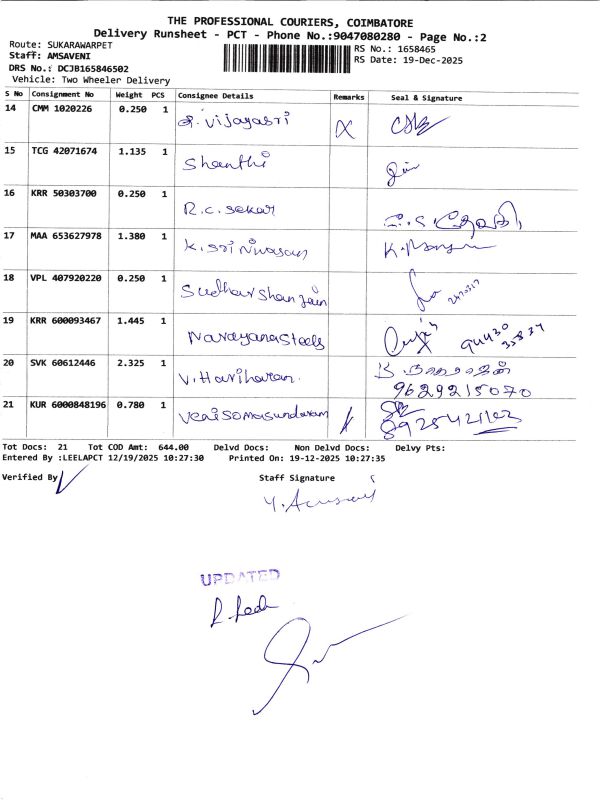 THE PROFESSIONAL COURIERS, COIMBATORE
Delivery Runsheet - PCT - Phone No.:9047080280 - Page No.:2
Route: SUKARAWARPET
RS No.: 1658465
Staff: AMSAVENI
RS Date: 19-Dec-2025
DRS No.: DCJB165846502
Vehicle: Two Wheeler Delivery
S No Consignment No Weight PCS Consignee Details Remarks Seal & Signature
14 CMM 1020226 0.250 1 R. Vijayasri
15 TCG 42071674 1.135 1 Shanthi
16 KRR 50303700 0.250 1 R.C. Sekar
17 MAA 653627978 1.380 1 K. Srinivasan
18 VPL 407920220 0.250 1 Sudharshan Jain
19 KRR 600093467 1.445 1 Narayana Steels
20 SVK 60612446 2.325 1 V. Hariharan
9629215070
21 KUR 6000848196 0.780 1
Tot Docs: 21 Tot COD Amt: 644.00 Delvd Docs: Non Delvd Docs: Delvy Pts:
Entered By :LEELAPCT 12/19/2025 10:27:30 Printed On: 19-12-2025 10:27:35
Verified By Staff Signature
UPDATED